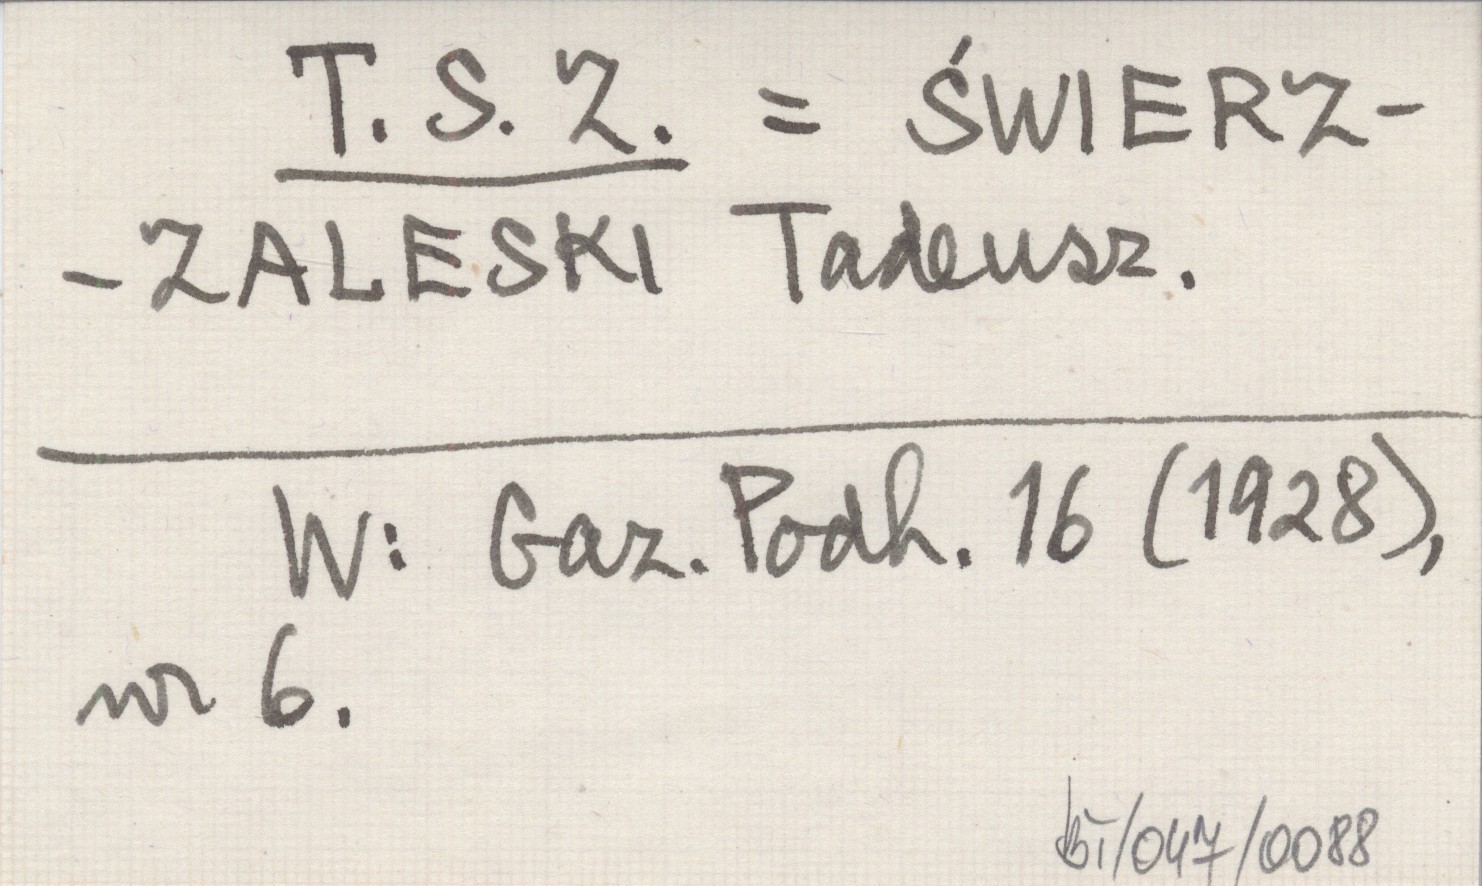 T.S.Z. = ŚWIERZ-
-ZALESKI Tadeusz.
W: Gaz. Podh. 16 (1928),
nr 6.
/047/0088